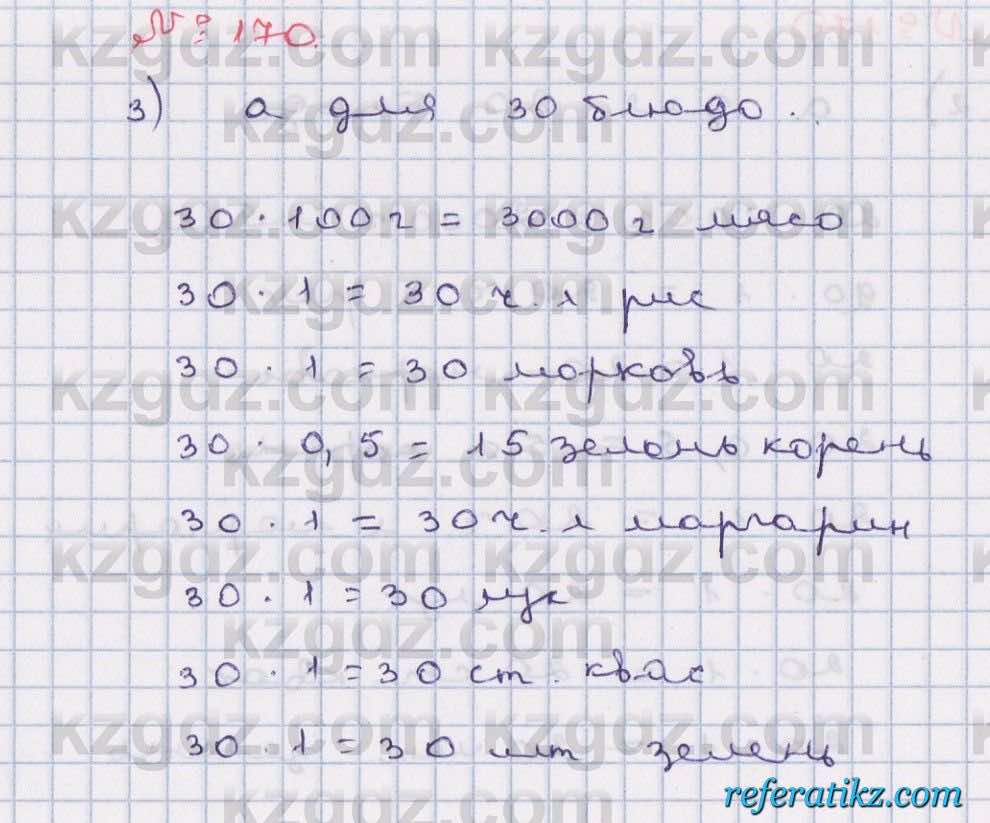 № 170.
3) а для 30 блюдо.
30 · 100 г = 3000 г мясо
30 · 1 = 30 ч. л рис
30 · 1 = 30 морковь
30 · 0,5 = 15 зелень корень
30 · 1 = 30 ч. л маргарин
30 · 1 = 30 лук
30 · 1 = 30 ст. квас
30 · 1 = 30 шт зелень
kzgdz.com
referatikz.com